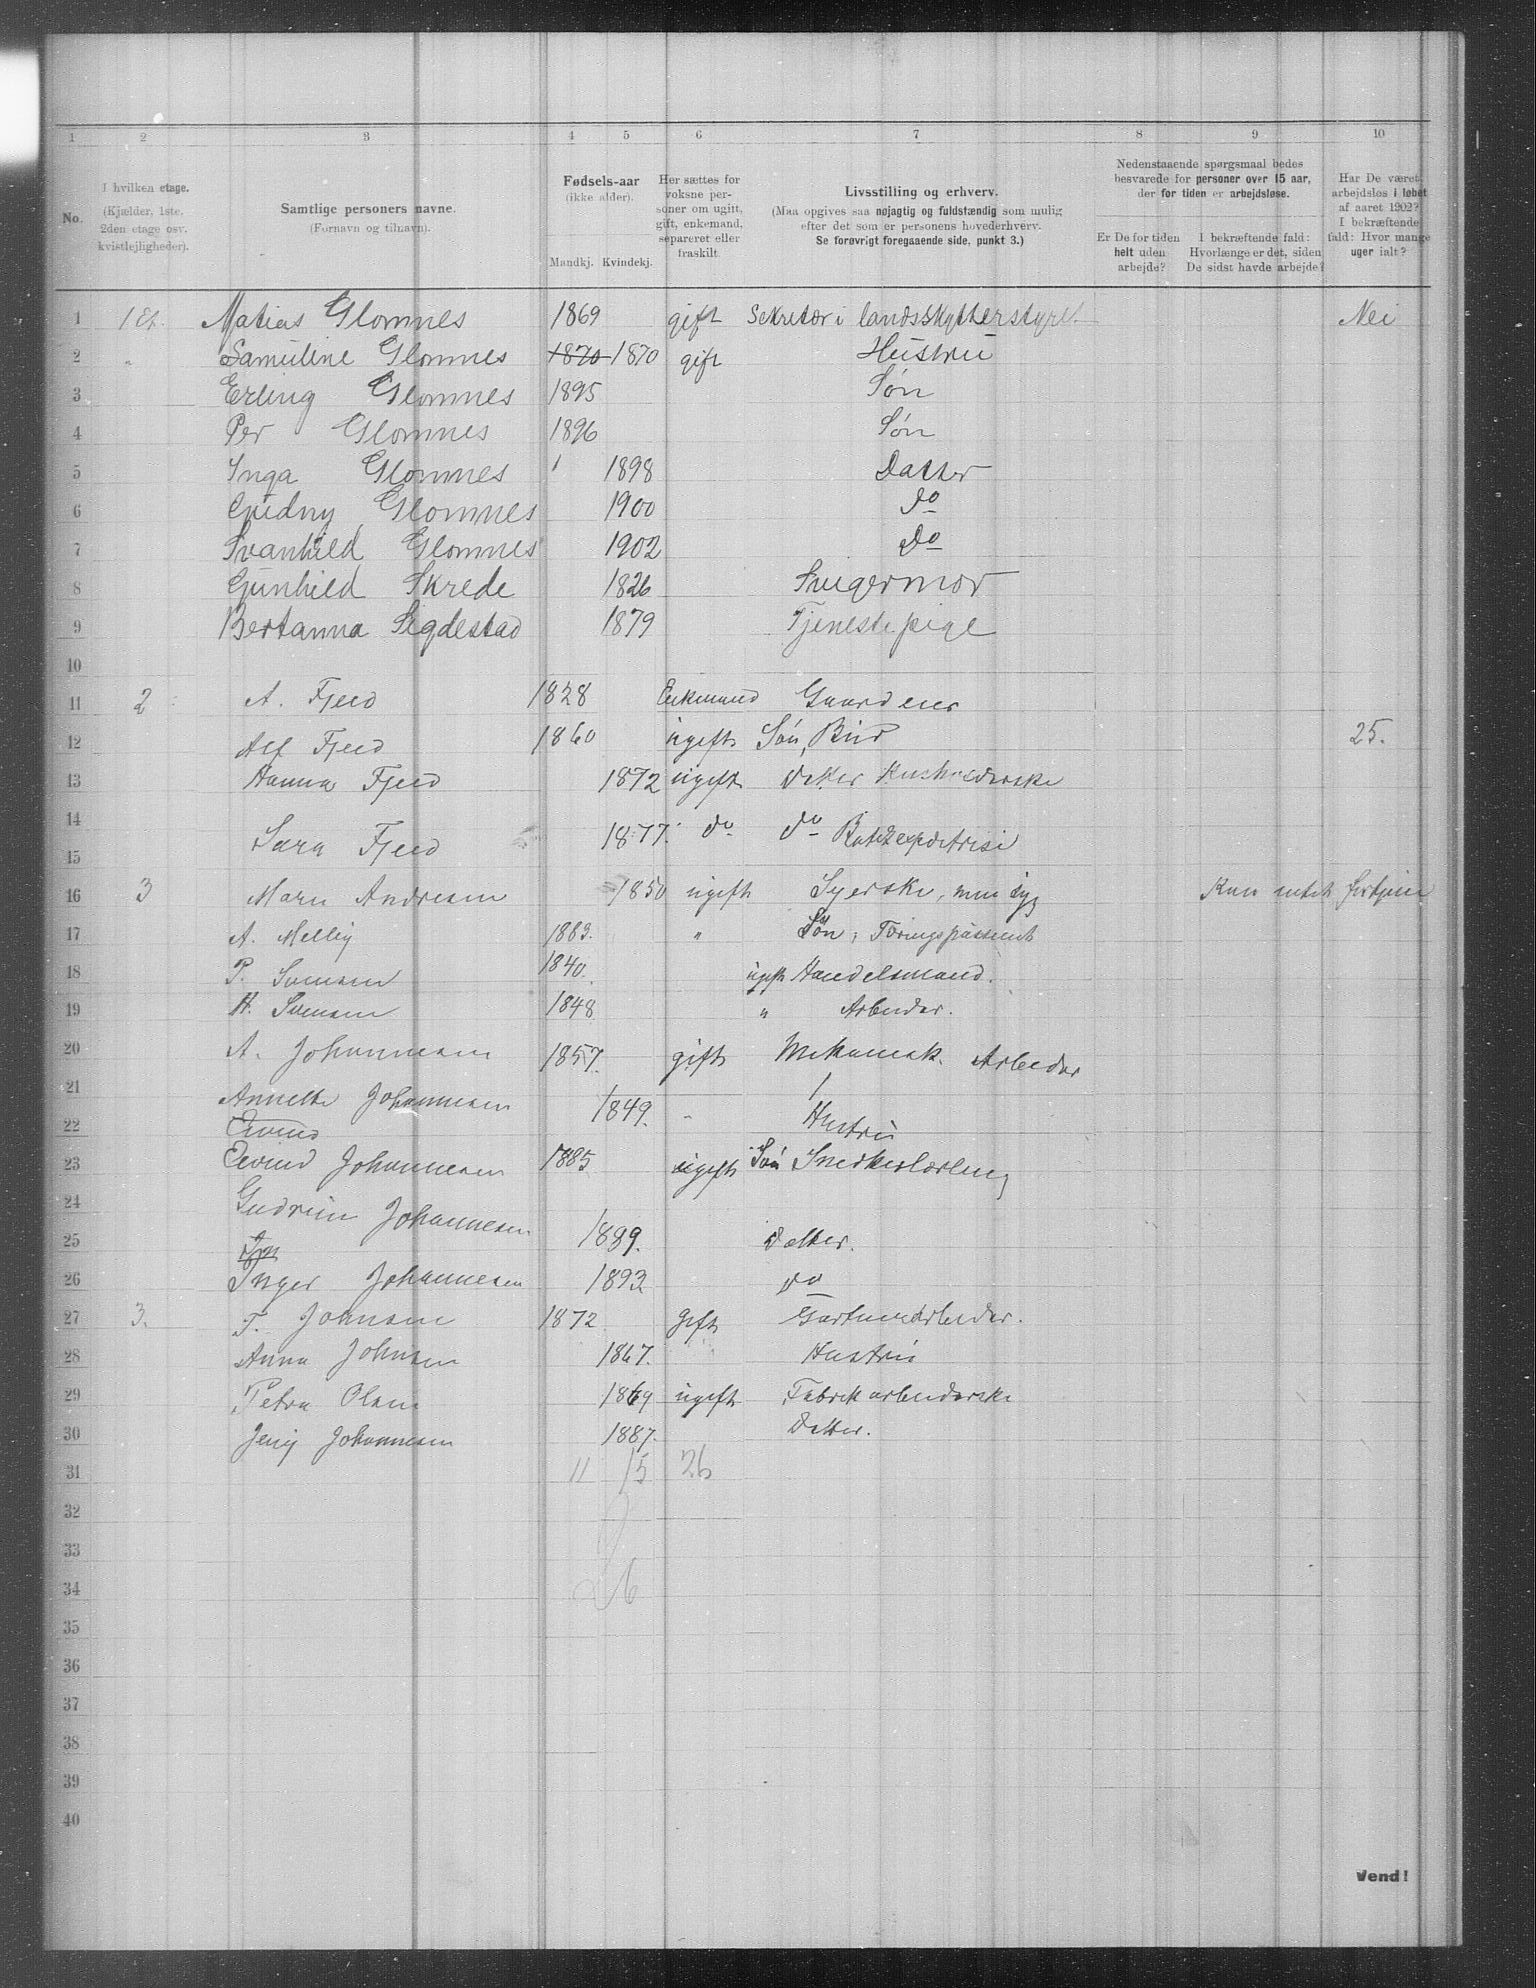 1 2 3 4 5 6 7 8 9 10
No.
I hvilken etage.
(Kjælder, 1ste,
2den etage osv.
kvistlejligheder).
Samtlige personers navne.
(Fornavn og tilnavn).
Fødsels-aar
(ikke alder).
Mandkj. Kvindekj.
Her sættes for
voksne per-
soner om ugift,
gift, enkemand,
separeret eller
fraskilt.
Livsstilling og erhverv.
(Maa opgives saa nøjagtig og fuldstændig som mulig
efter det som er personens hovederhverv.
Se forøvrigt foregaaende side, punkt 3.)
Nedenstaaende spørgsmaal bedes
besvarede for personer over 15 aar,
der for tiden er arbejdsløse.
Er De for tiden
helt uden
arbejde?
I bekræftende fald:
Hvorlænge er det, siden
De sidst havde arbejde?
Har De været
arbejdsløs i løbet
af aaret 1902?
I bekræftende
fald: Hvor mange
uger ialt?
1 1 Et. Matias Glomnes 1869 gift Sekretær i landsskytterstyret Nei
2 " Samuline Glomnes 1870 1870 gift Hustru
3 Erling Glomnes 1895 Søn
4 Per Glomnes 1896 Søn
5 Inga Glomnes 1898 Datter
6 Gudny Glomnes 1900 do
7 Svanhild Glomnes 1902 do
8 Gunhild Skrede 1826 Svigermor
9 Bertanna Sigdestad 1879 Tjenestepige
10
11 2 A. Fjeld 1828 Enkemand Gaardeier
12 Alf Fjeld 1860 ugift Søn, Bud 25.
13 Hanna Fjeld 1872 ugift datter Husholderske
14
15 Sara Fjeld 1877. do do
16 3 Maren Andresen 1850 ugift Syerske, men syg Kun
17 A. Melby 1883. " Søn,
18 P. Svensen 1840. ugift Handelsmand.
19 H. Svensen 1848 " Arbeider.
20 A. Johannesen 1857. gift Mekanisk. Arbeider
21 Annette Johannesen 1849. " Hustru
22 Eivind
23 Eivind Johannesen 1885 ugift Søn Snedkerlærling
24 Gudrun Johannesen 1889. Datter.
25
26 Inger Johannesen 1893 do
27 3. T. Johnsen 1872 gift Gartnerarbeider.
28 Anna Johnsen 1867. Hustru
29 Petra Olsen 1869 ugift Fabrikarbeiderske
30 Jenny Johannesen 1887. Datter.
31 11 15 26
32
33
34 26
35
36
37
38
39
40
Vend!